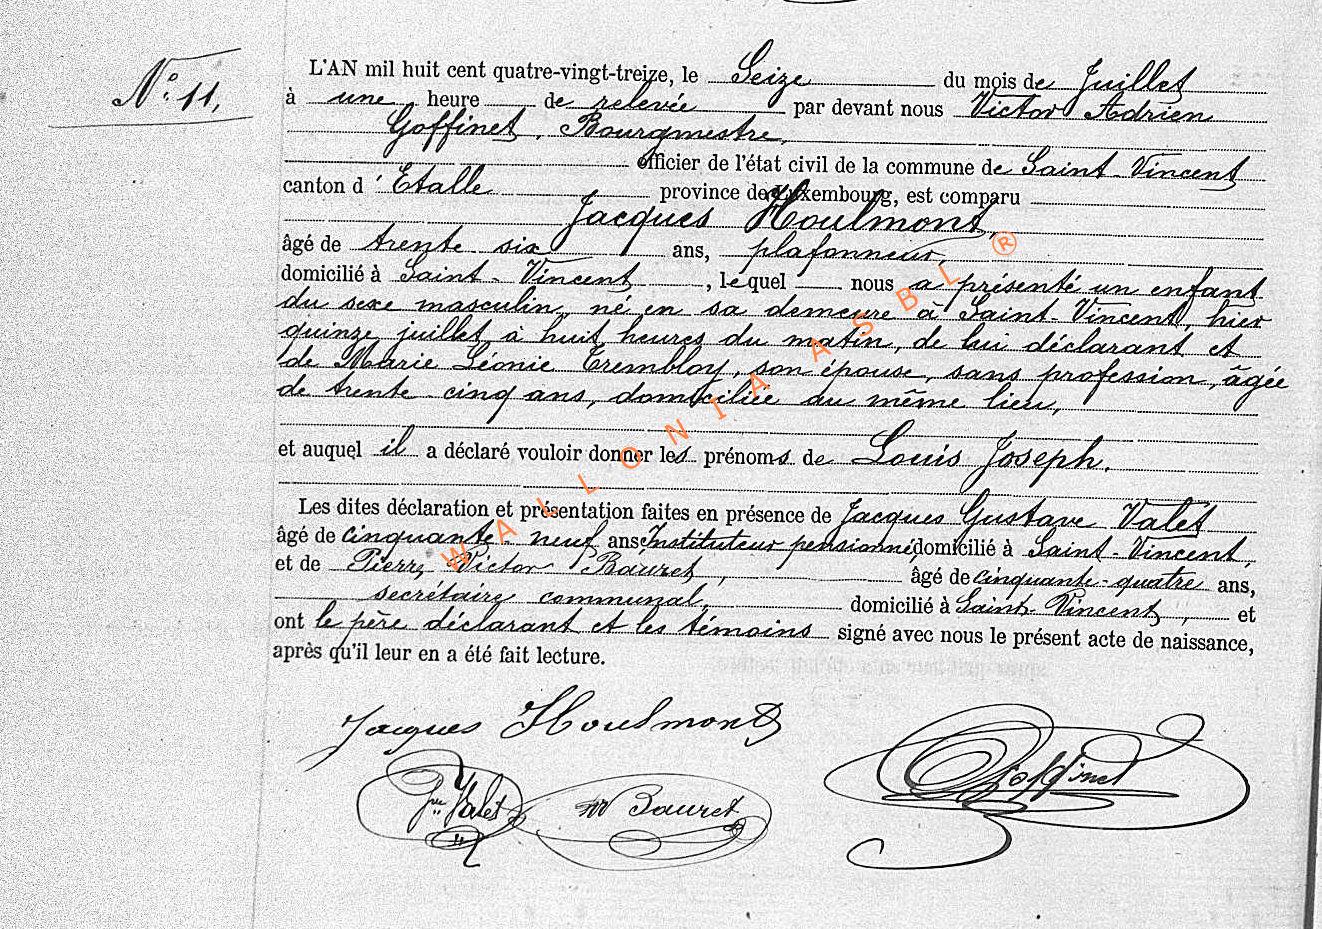 N° 11.
L'AN mil huit cent quatre-vingt-treize, le Seize du mois de Juillet
à une heure de relevée par devant nous Victor Adrien
Goffinet, Bourgmestre,
officier de l'état civil de la commune de Saint-Vincent
canton d'Etalle province de Luxembourg, est comparu
Jacques Houlmont,
âgé de trente six ans, plafonneur,
domicilié à Saint-Vincent, lequel nous a présenté un enfant
du sexe masculin, né en sa demeure à Saint-Vincent, hier
quinze juillet, à huit heures du matin, de lui déclarant et
de Marie Léonie Trembloy, son épouse, sans profession, âgée
de trente-cinq ans, domiciliée au même lieu,
et auquel il a déclaré vouloir donner les prénoms de Louis Joseph.
Les dites déclaration et présentation faites en présence de Jacques Gustave Valet
âgé de cinquante-neuf ans Instituteur pensionné, domicilié à Saint-Vincent,
et de Pierre Victor Bauret, âgé de cinquante-quatre ans,
secrétaire communal, domicilié à Saint-Vincent, et
ont le père déclarant et les témoins signé avec nous le présent acte de naissance,
après qu'il leur en a été fait lecture.
Jacques Houlmont
Goffinet
Valet
Bauret
WALLONIA ASBL ®